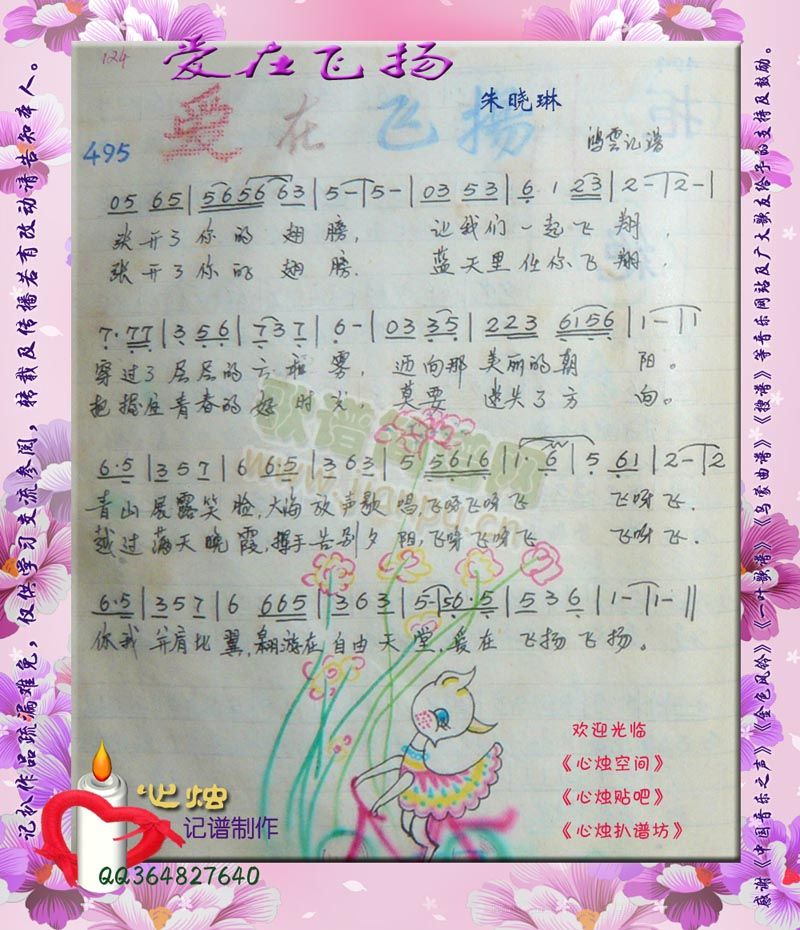 124
爱在飞扬
朱晓琳
爱在飞扬
495
鸿雲记谱
05 65 | 565663 | 5 - | 5 - | 03 53 | 6 1 23 | 2 - | 2 - |
张开了你的翅膀, 让我们一起飞翔,
张开了你的翅膀. 蓝天里任你飞翔.
7·77 | 3 56 | 7 3 7 | 6 - | 03 35 | 223 6156 | 1 - | 1
穿过了层层的云和雾, 迈向那美丽的朝阳。
把握住青春的好时光, 莫要迷失了方向。
6·5 | 3 5 7 | 6 6·5 | 3 6 3 | 5 5616 | 1· 6 | 5 61 | 2 - | 2
青山展露笑脸,大海放声歌唱,飞呀飞呀飞 飞呀飞.
越过满天晓霞,挥手告别夕阳,飞呀飞呀飞 飞呀飞.
6·5 | 3 5 7 | 6 665 | 3 6 3 | 5 - | 56·5 | 5 3 6 | 1 - | 1 - ||
你我并肩比翼,翱游在自由天堂,爱在飞扬飞扬。
歌谱简谱网
www.jianpu.cn
欢迎光临
《心烛空间》
《心烛贴吧》
《心烛扒谱坊》
心烛
记谱制作
QQ364827640
记扒作品疏漏难免,仅供学习交流参阅,转载及传播若有改动请告知本人。
感谢《中国音乐之声》《金色风铃》《一叶歌谱》《乌蒙曲谱》《搜谱》等音乐网站及广大歌友给予的支持及鼓励。